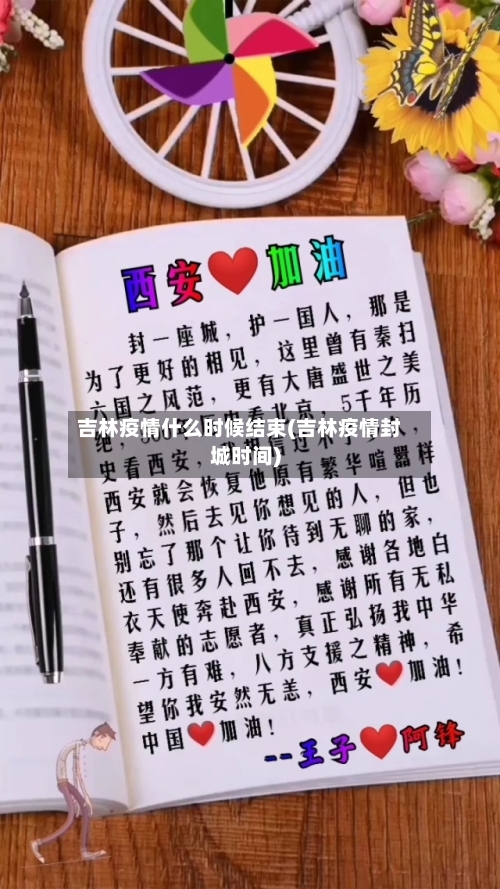 西安❤加油
封一座城，护一国人，那是
为了更好的相见，这里曾有秦扫
六国之风范，更有大唐盛世之美
吉林疫情什么时候结束(吉林疫情封
城时间)
史看西安，
西安就会恢复他原有繁华喧嚣样
子，然后去见你想见的人，但也
别忘了那个让你待到无聊的家，
还有很多人回不去，感谢各地白
衣天使奔赴西安，感谢所有无私
奉献的志愿者，真正弘扬我中华
一方有难，八方支援之精神，希
望你我安然无恙，西安❤加油！
中国❤加油！
--王子❤阿锋